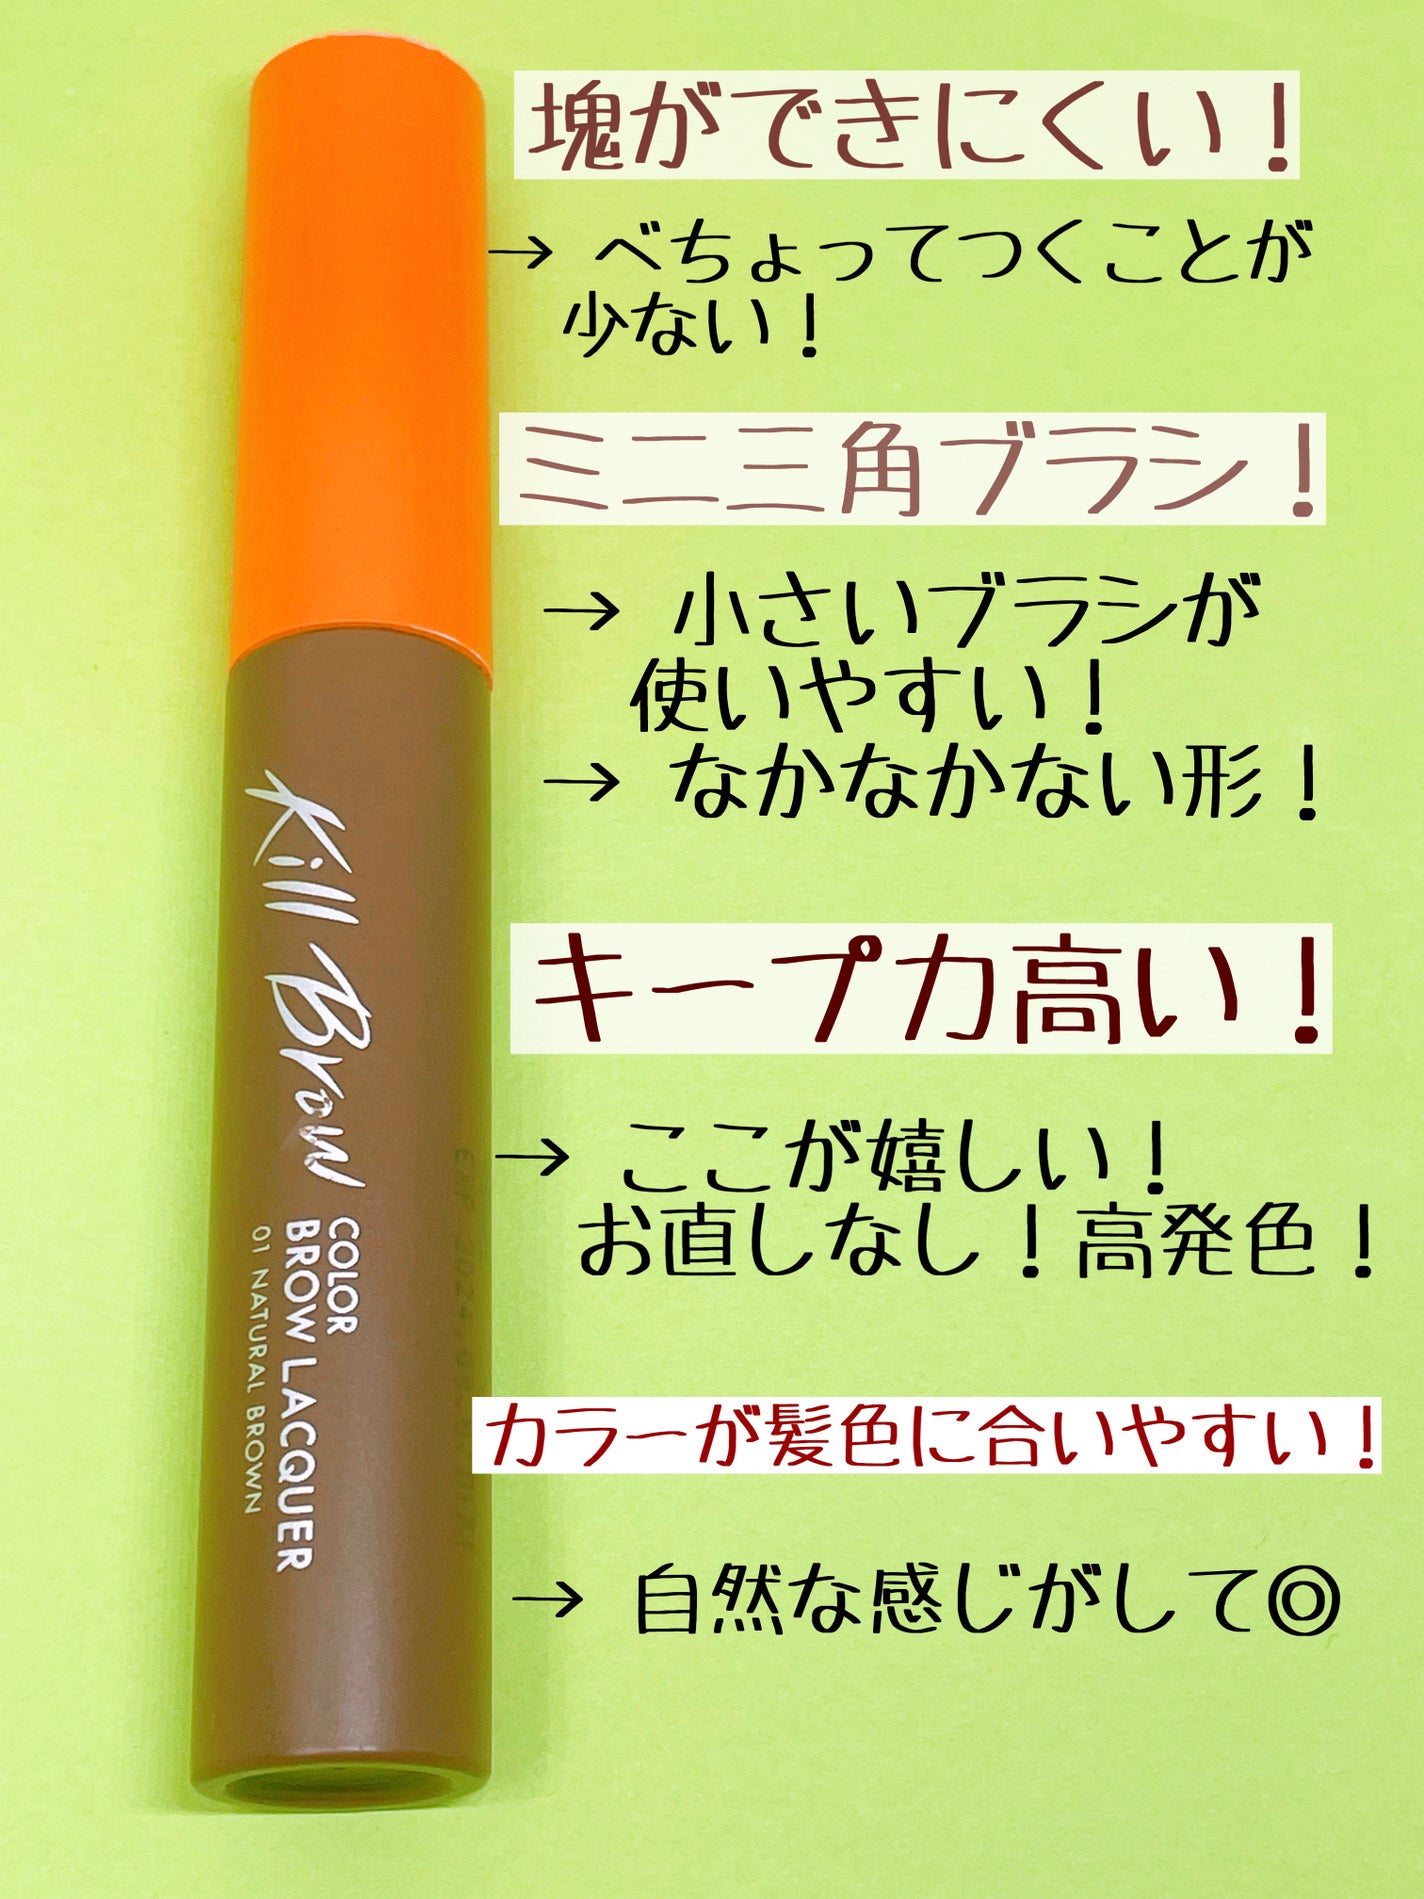 塊ができにくい！
→ べちょってつくことが
少ない！
ミニ三角ブラシ！
→ 小さいブラシが
使いやすい！
→ なかなかない形！
キープ力高い！
→ ここが嬉しい！
お直しなし！高発色！
カラーが髪色に合いやすい！
→ 自然な感じがして◎
Kill Brow
COLOR
BROW LACQUER
01 NATURAL BROWN